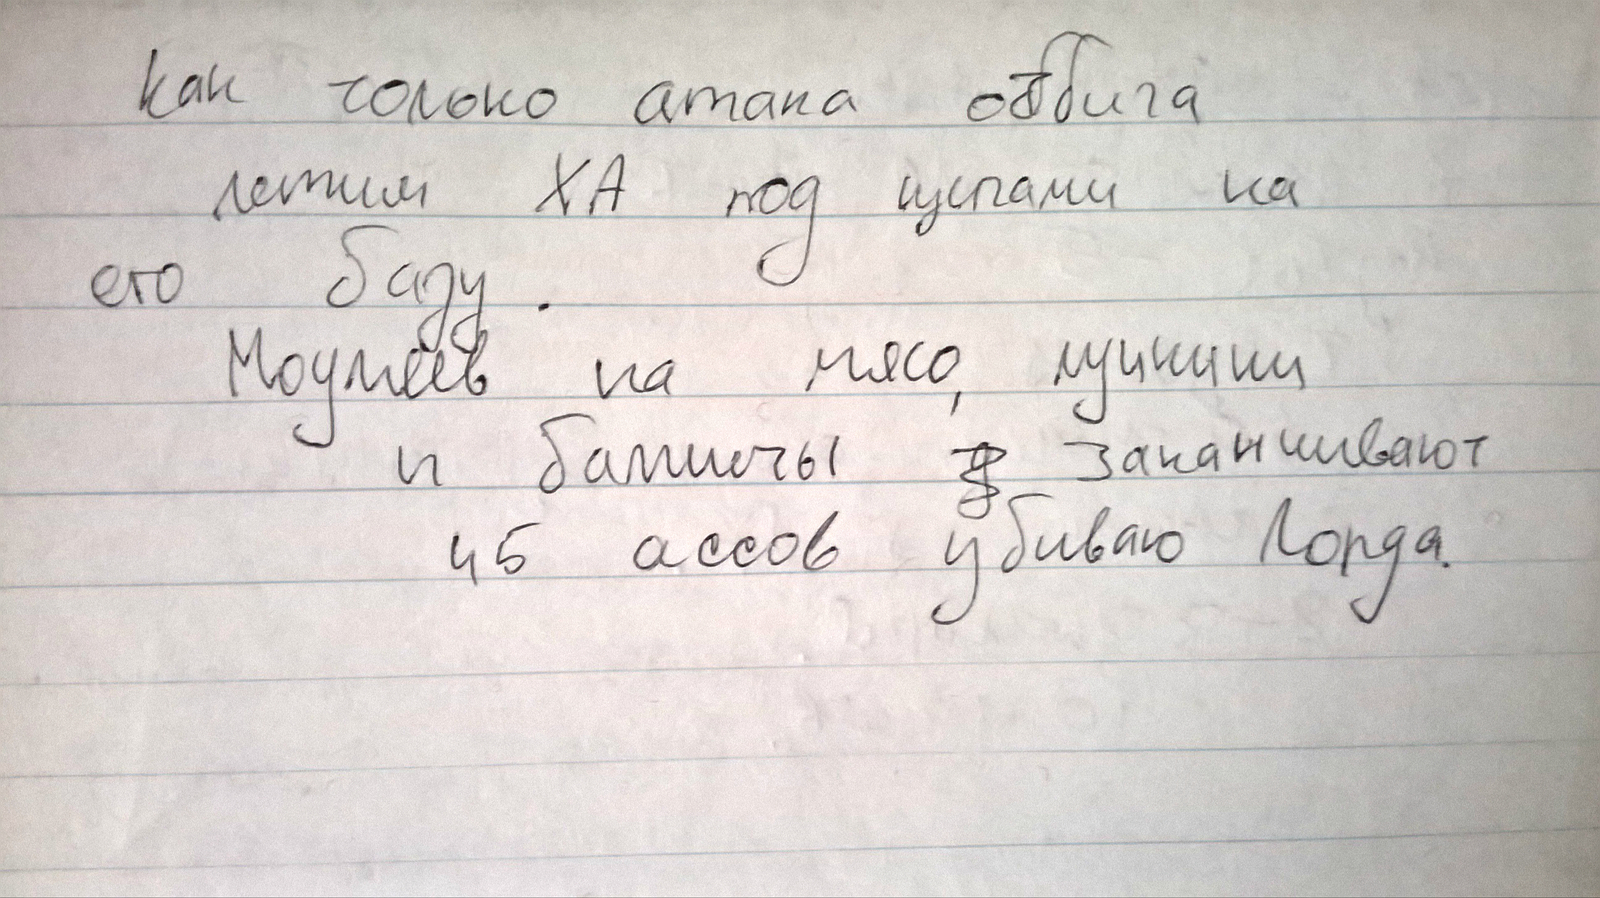 Как только атака отбита
летим ХА под щитами на
его базу.
на мясо, лучники
и баллисты заканчивают
45 ассов убиваю Лорда.